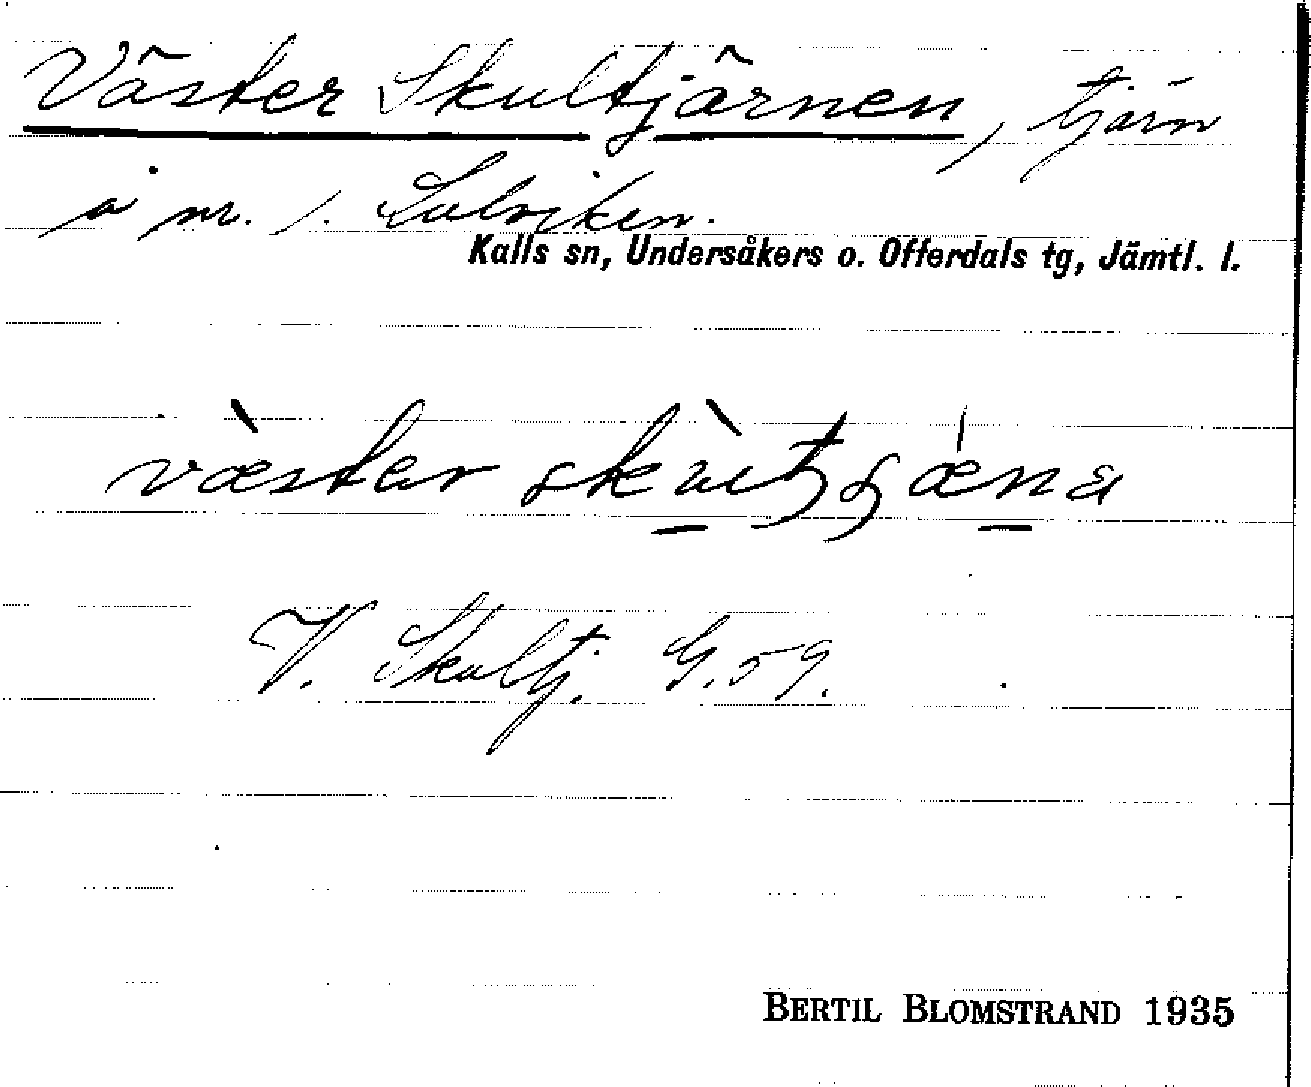 Väster Skultjärnen, tjärn
å nr. 1. Sulviken.
Kalls sn, Undersåkers o. Offerdals tg, Jämtl. l.
væster
V. Skultj. G. 59.
BERTIL BLOMSTRAND 1935